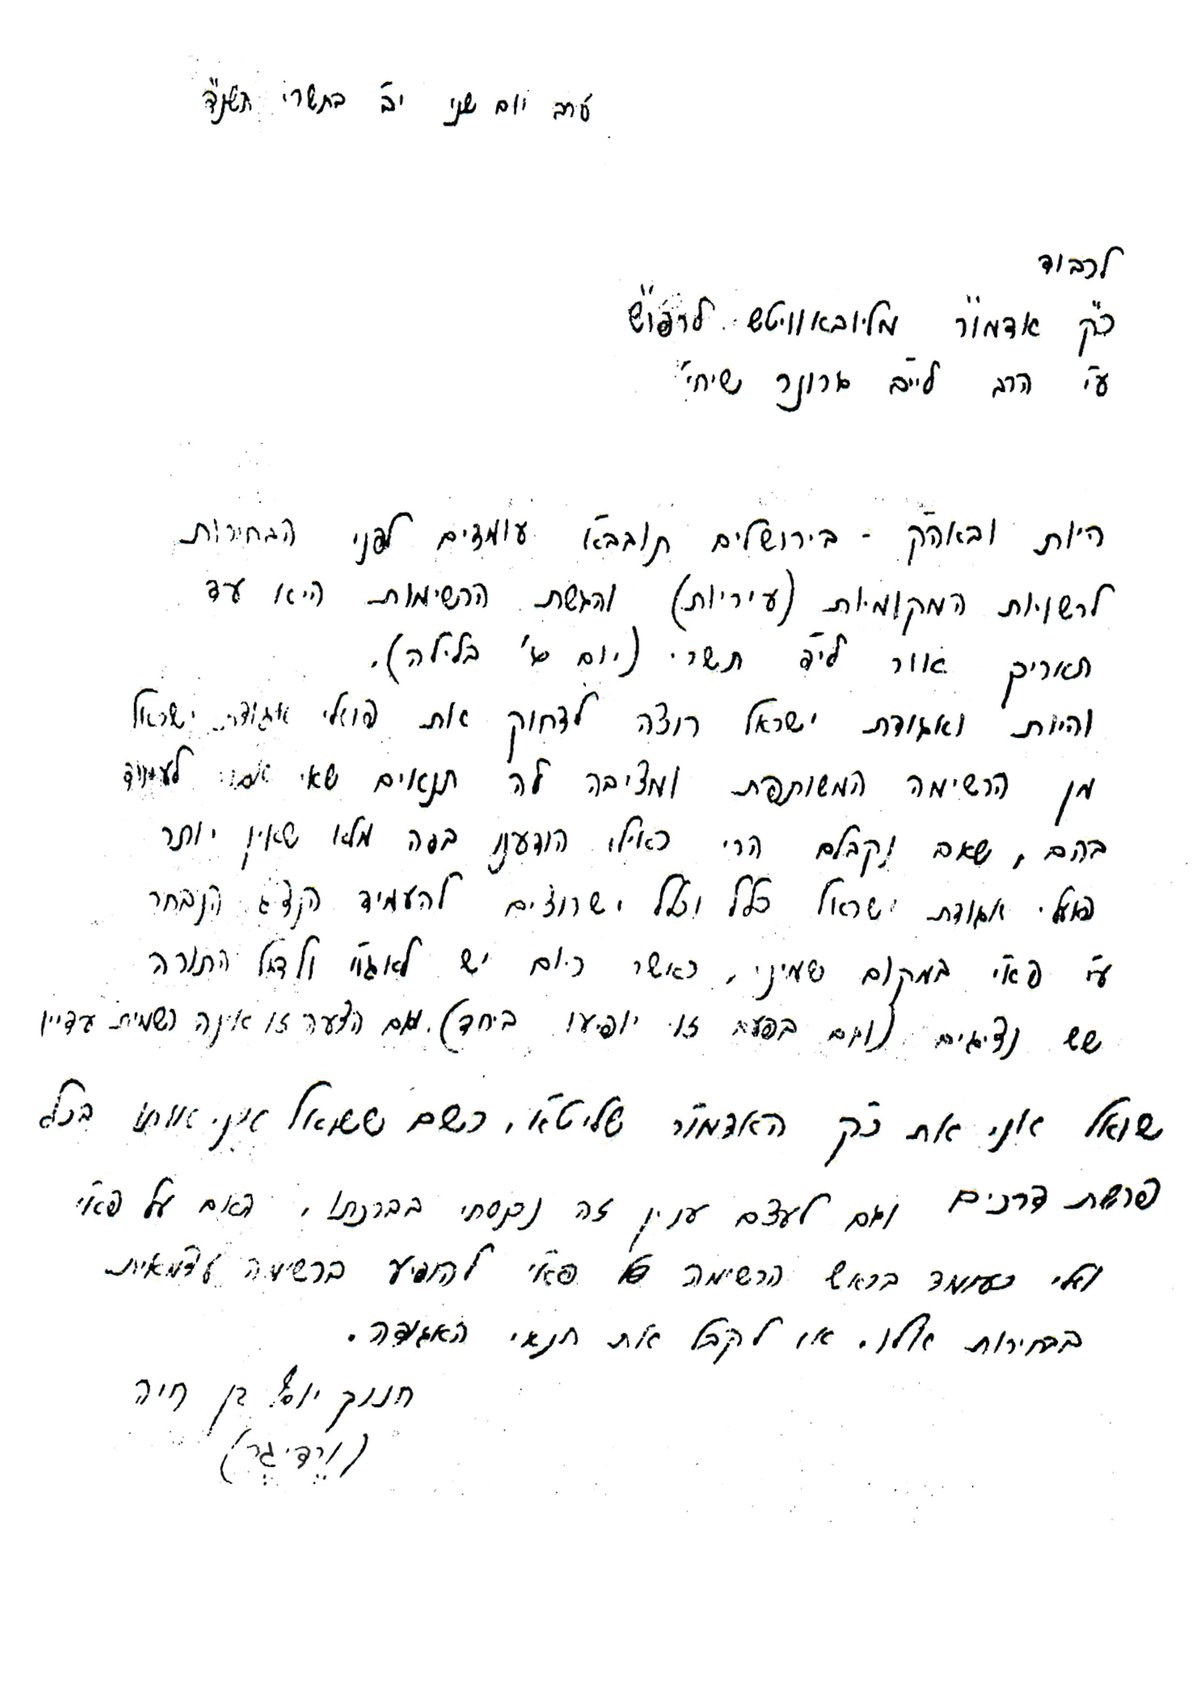 ערב יום שני י"ב בתשרי תשנ"ד
לכבוד
כ"ק אדמו"ר מליובאוויטש לרפו"ש
ע"י הרב לייב גרונר שיחי'
היות ובאה"ק - בירושלים תובב"א עומדים לפני הבחירות
לרשויות המקומיות (עיריות) והגשת הרשימות היא עד
תאריך אור לי"ד תשרי (יום ב' בלילה).
והיות ואגודת ישראל רוצה לדחוק את פועלי אגודת ישראל
מן הרשימה המשותפת ומציבה לה תנאים שאי אפשר לעמוד
בהם, שאם נקבלם הרי כאילו הודענו בפה מלא שאין יותר
פועלי אגודת ישראל כלל וכלל, שרוצים להעמיד הנציג הנבחר
ע"י פא"י במקום שמיני, כאשר כיום יש לאגו"י ולדגל התורה
שש נציגים (וגם בפעם זו יופיעו ביחד). וגם הצעה זו אינה רשמית עדיין
שואל אני את כ"ק האדמו"ר שליט"א, כשם ששואל אני אותו בכל
פרשת דרכים וגם לעצם ענין זה נכנסתי בברכתו, האם על פא"י
ועלי כעומד בראש הרשימה פא"י להופיע ברשימה עצמאית
בבחירות אלו, או לקבל את תנאי האגודה.
חנוך יוסף בן חיה
(ורדיגר)